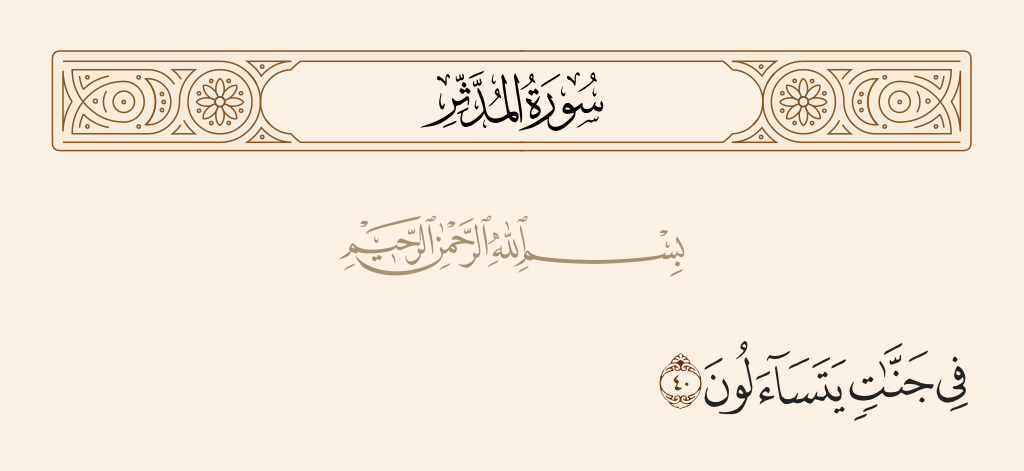 سُورَةُ المُدَّثِّرِ
بِسْمِ ٱللَّهِ ٱلرَّحْمَٰنِ ٱلرَّحِيمِ
فِى جَنَّٰتٍ يَتَسَآءَلُونَ ٤٠